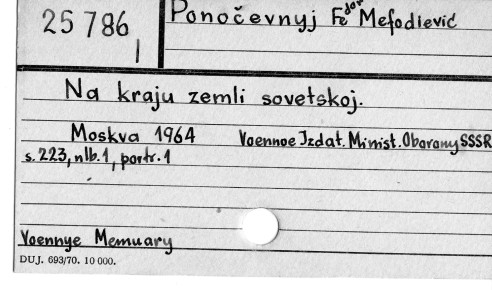 25 786
I
Ponočevnyj Fedor Mefodievič
Na kraju zemli sovetskoj.
Moskva 1964 Voennoe Izdat. Minist. Oborony SSSR
s. 223, nlb. 1, portr. 1
Voennye Memuary
DUJ. 693/70. 10 000.